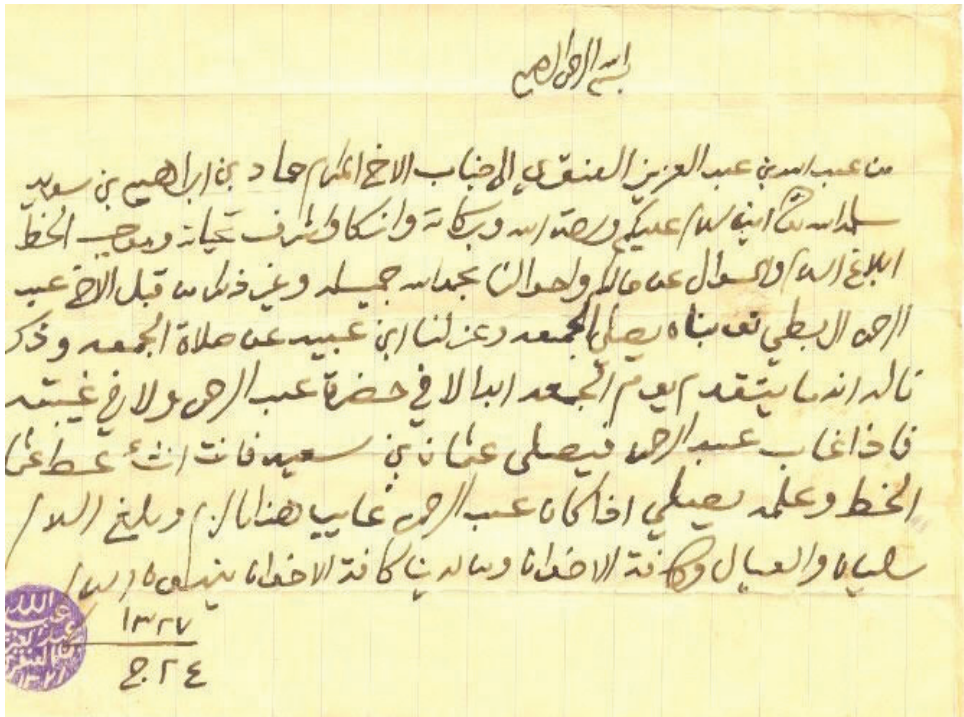 بسم الله الرحمن الرحيم
من عبد الله بن عبد العزيز العنقري الى جناب الاخ المكرم حماد بن ابراهيم بن سويد
سلمه الله تعالى آمين سلام عليكم ورحمة الله وبركاته وازكا واشرف تحياته وموجب الخط
ابلاغ السلام والسوال عن حالكم واحوالنا بحمد الله جميله وغير ذلك من قبل الاخ عبد
الرحمن البطي يصلي الجمعه وعزلنا ابن عبيد عن صلاة الجمعه وذكر
ناله انه ما يتقدم يوم الجمعه ابدا لا في حضرة عبد الرحمن ولا في غيبته
فاذا غاب عبد الرحمن فيصلى عثمان بن سعيد فانت عط عثمان
الخط وعلمه يصلي اذا كان عبد الرحمن غايب هذا مالزم وبلغ السلام
سليمان والعيال وكافة الاخوان ومن لدينا كافة الاخوان ينهون السلام
١٣٢٧
٢٤ ج